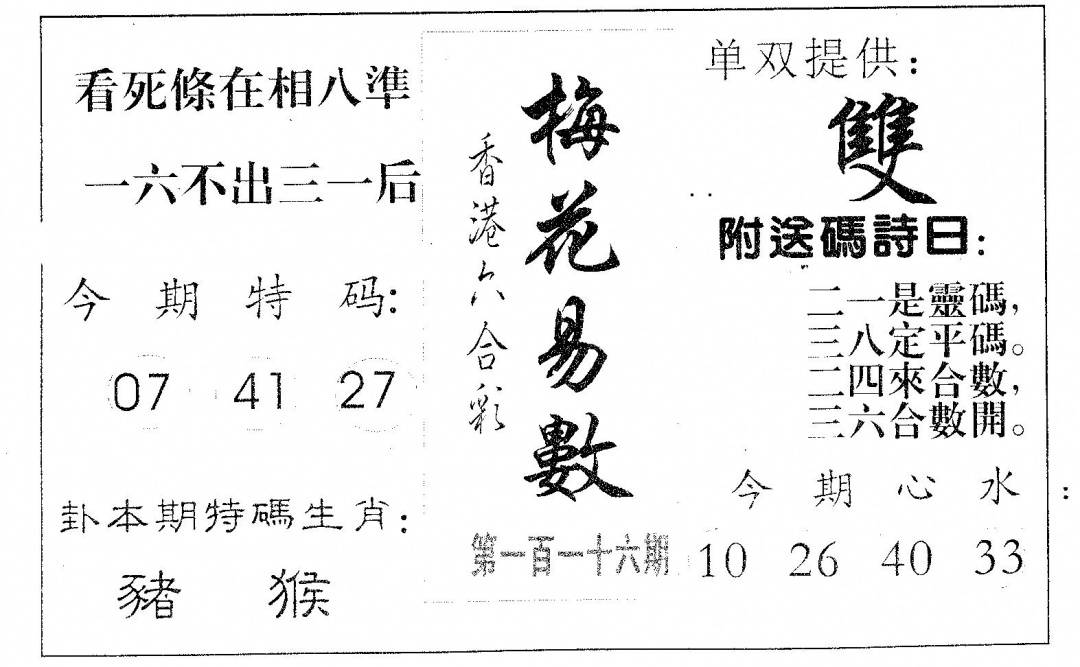 看死條在相八準
一六不出三一后
今期特码:
07 41 27
卦本期特碼生肖:
豬 猴
香港六合彩
梅花易數
第一百一十六期
单双提供:
雙
附送碼詩曰:
二一是靈碼,
三八定平碼。
二四來合數,
三六合數開。
今期心水:
10 26 40 33